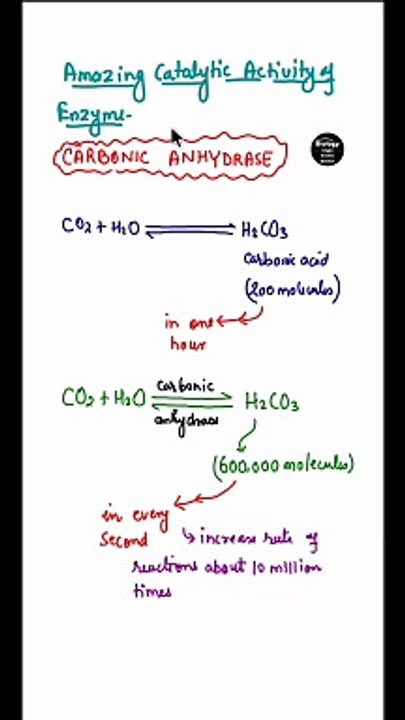 Amazing Catalytic Activity of
Enzyme-
CARBONIC ANHYDRASE
CO2 + H2O ⇌ H2CO3
Carbonic acid
(200 molecules)
in one
hour
CO2 + H2O carbonic anhydrase ⇌ H2CO3
(600,000 molecules)
in every
Second
↳ increase rate of
reactions about 10 million
times